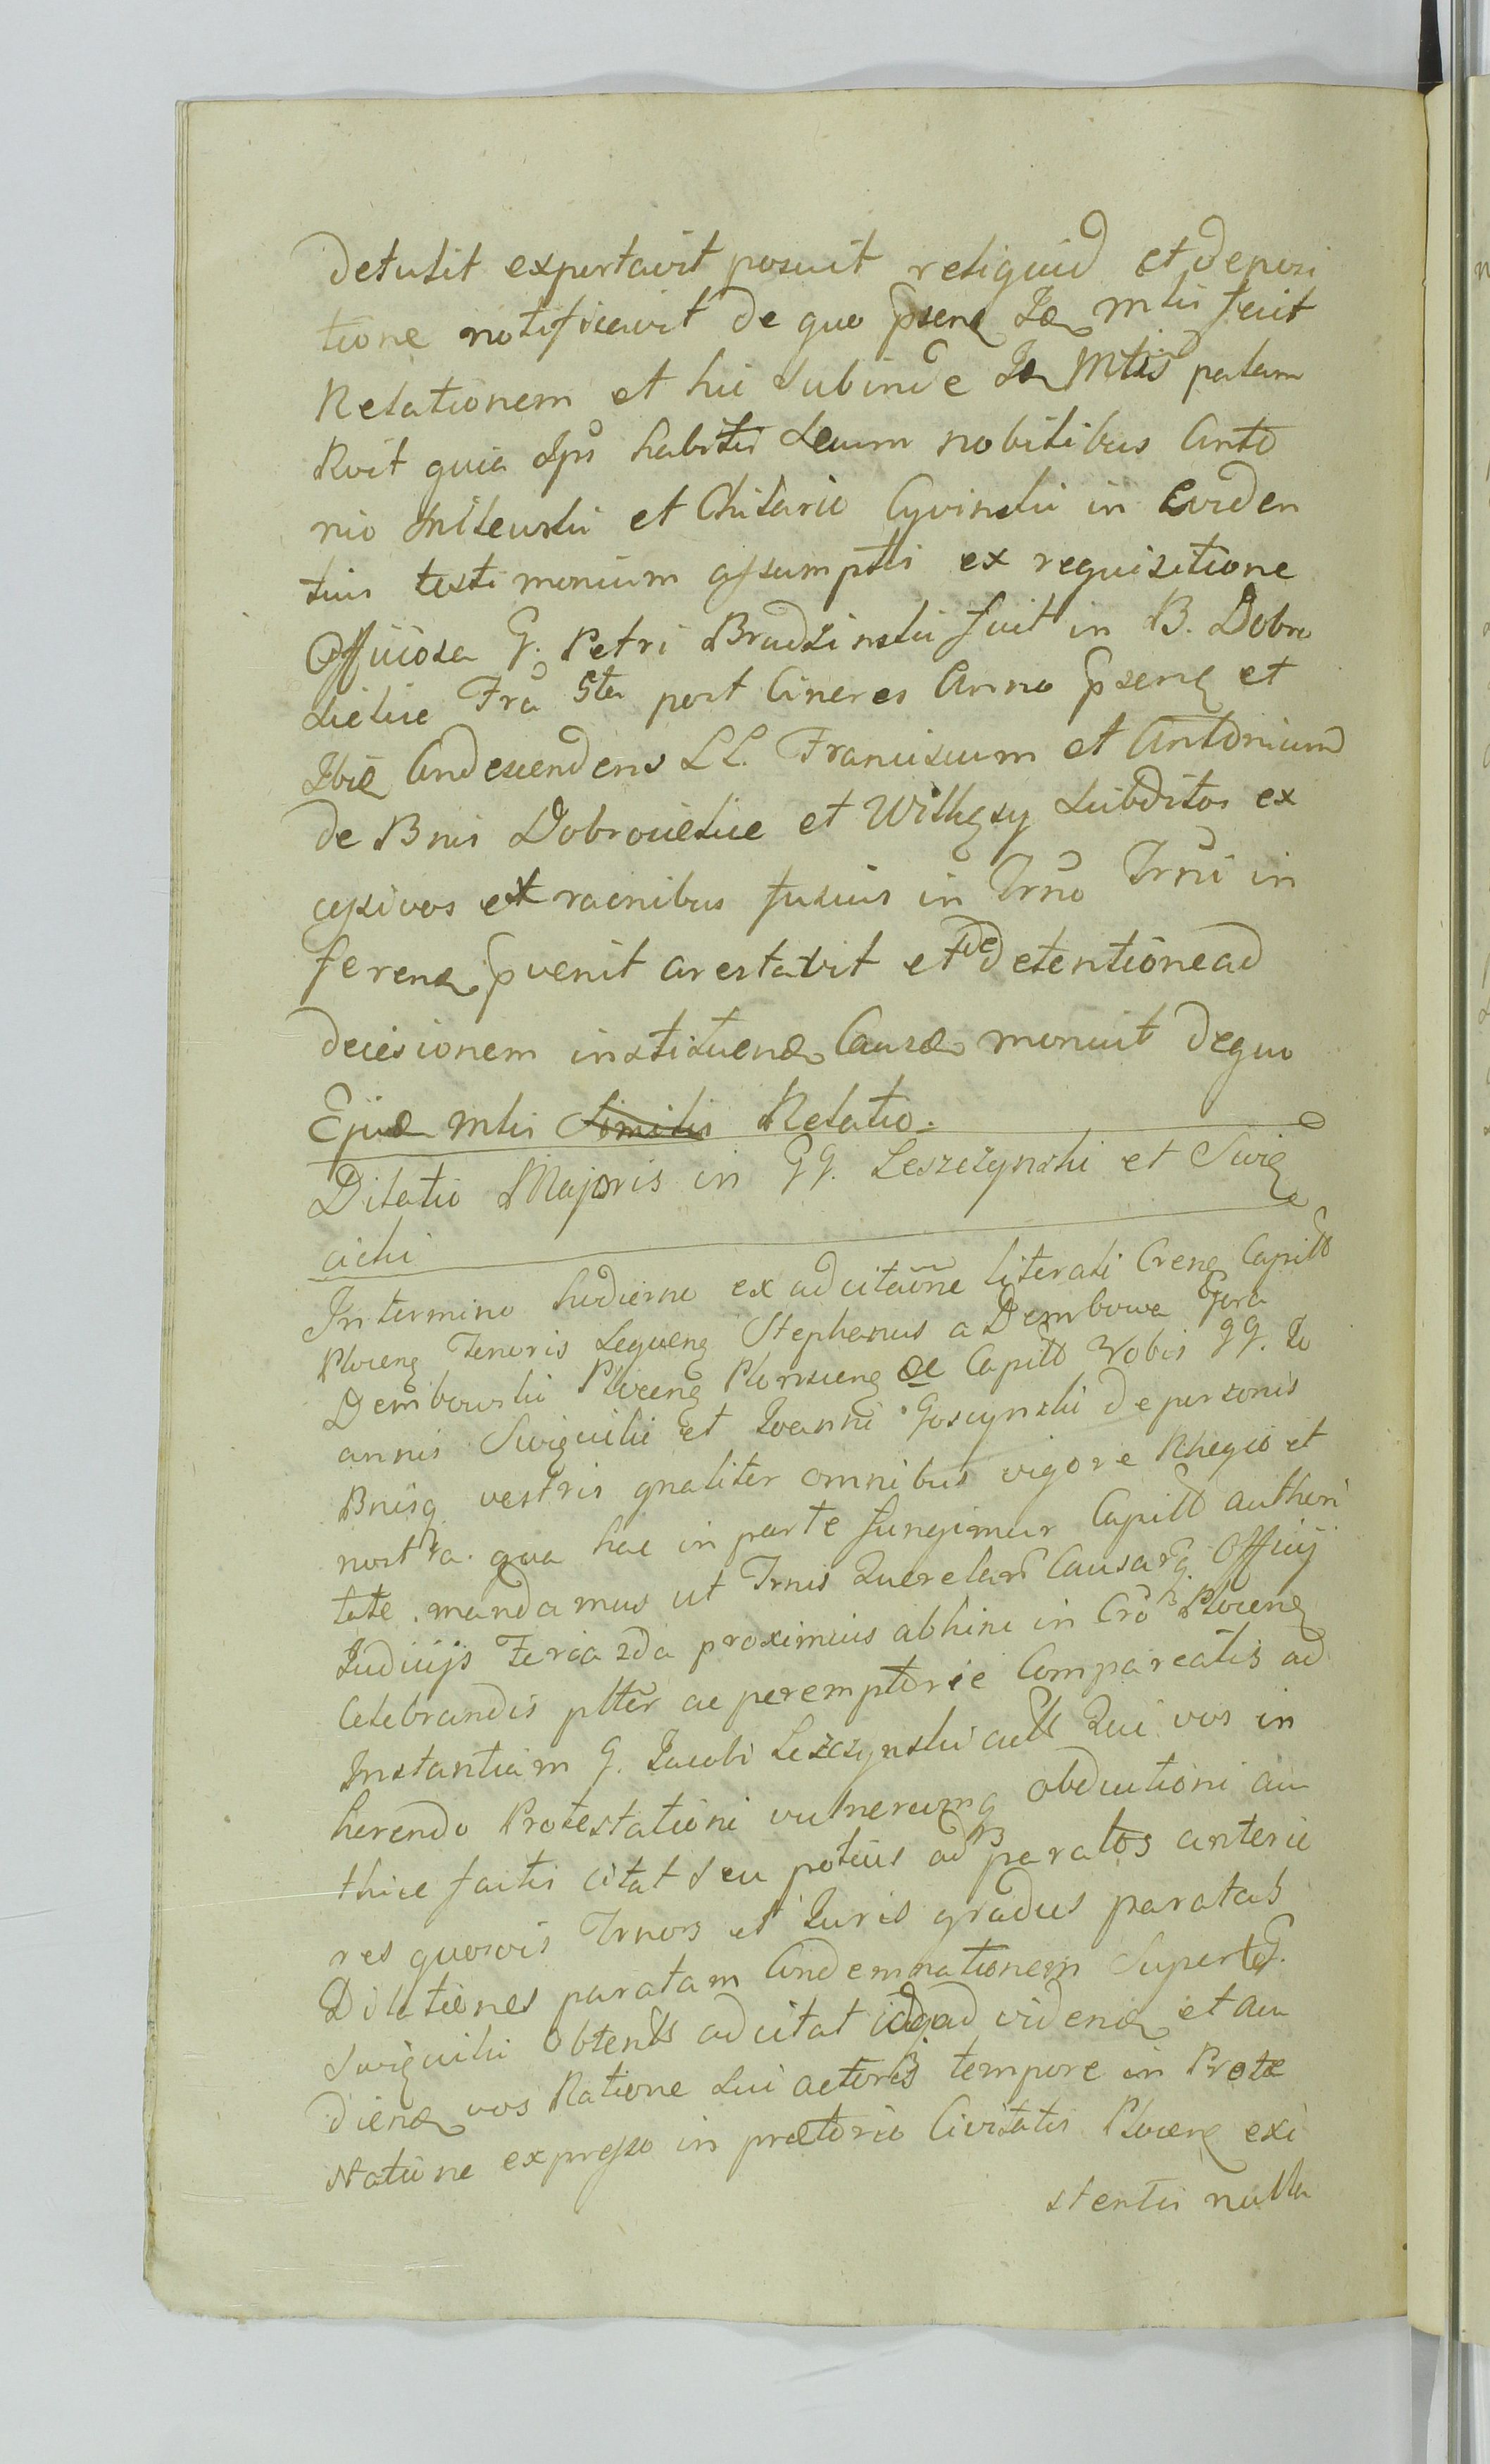 detulit exportavit posuit reliquid et deposi
tione notificavit de quo psenē Iō mlis fecit
Relationem et hic subinde Iō Mtis palam
Rvit quia Ips habitis secum nobilibus Anto
nio Milewski et Chilario Cywinski in Eviden
tius testimonium assumptis ex requisitione
Officiosa G. Petri Brudzinski fuit in B. Dobro
sielice Fra 5ta post Cineres Anno psenē et
Ibiē Condescendens LL. Franciscum et Antonium
de Bnis Dobrocielice et Wilkęsy subditos ex
cessivos ex racnibus fusius in Trno Trni in
ferenō pvenit arestavit et de detentione ad
decisionem instituenō Causō monuit de quo
Ejusō mlis Relatio.
Dilatio Majoris in GG. Leszczynski et Swię
cicki
In termino hodierno ex adcitatione literali Crenē Capitl
Plocenē Tenoris sequenē Stephanus a Dembowa Gora
Dembowski Plocenē Plonscenē &c Capitl Vobis GG. Jo
annis Swięcicki et Joanni Goscynski de personis
Bnisq. vestris gnaliter omnibus vigore Rhegio et
nostra. qua hac in parte fungimur Capitl authori
tate. mandamus ut Trnis Querelarr Causarq. Officij
Judicijs Feria 2da proximius abhinc in Cro Plocenē
Celebrandis pltter ac peremptorie Compareatis ad
Instantiam G. Jacobi Leszczynski actl Qui vos in
herendo Protestationi vulnerumq obductioni au
thice factis citat seu potius ad paratos anterio
res quosvis Trnos et Juris gradus paratas
Dilationes paratam Condemnationem super G.
Swięcicki obtentl adcitat idq. ad videnō et au
dienō vos Ratione sui actoris tempore in Prote
statione expresso in prætorio Civitatis Plocenē exi
stentis nulla